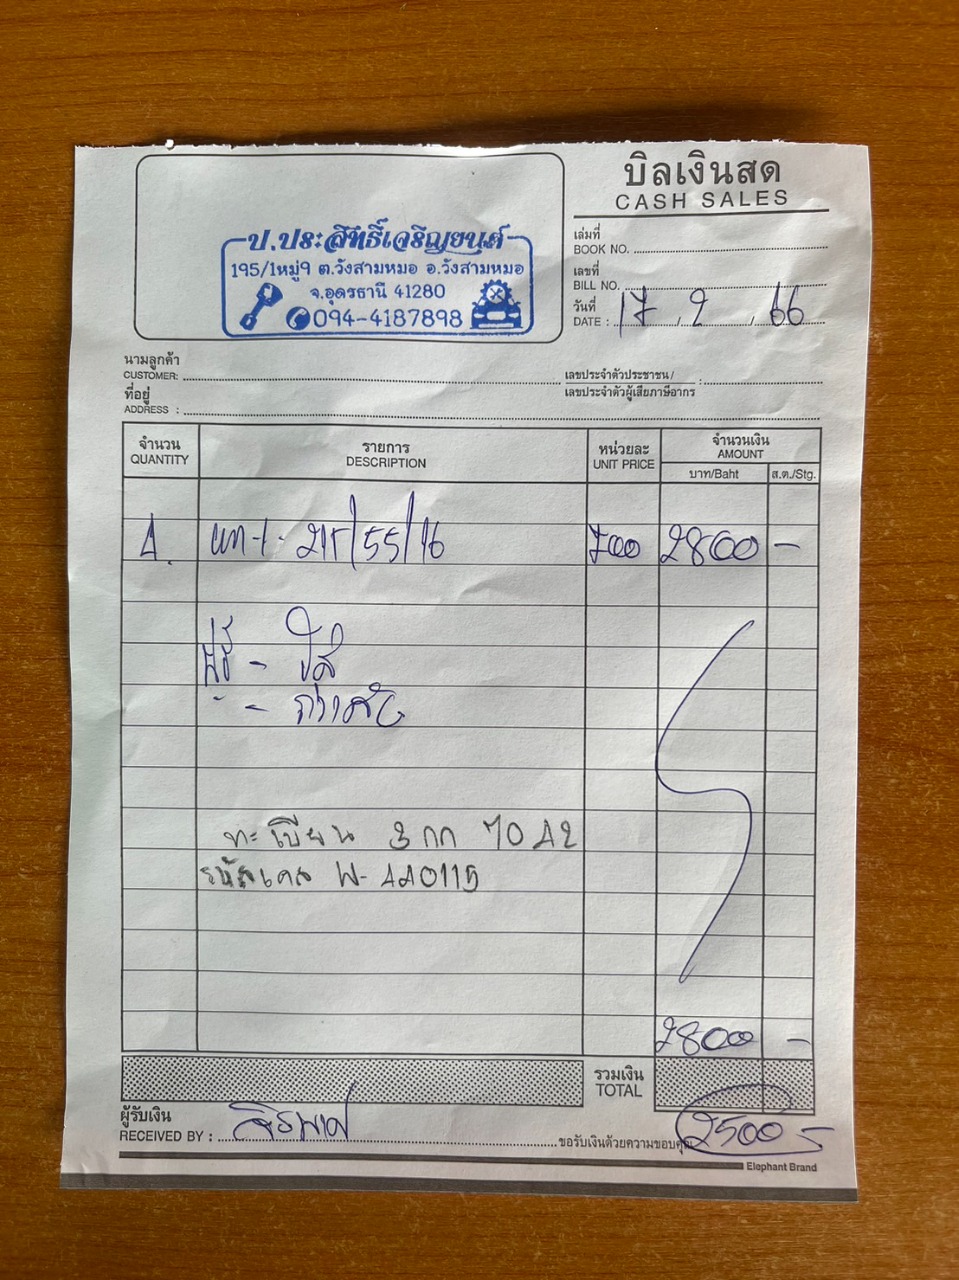 บิลเงินสด
CASH SALES
ป.ประสิทธิ์เจริญยนต์
195/1หมู่9 ต.วังสามหมอ อ.วังสามหมอ
จ.อุดรธานี 41280
094-4187898
เล่มที่
BOOK NO.
เลขที่
BILL NO.
วันที่
DATE : 17 , 2 , 66
นามลูกค้า
CUSTOMER:
เลขประจำตัวประชาชน /
เลขประจำตัวผู้เสียภาษีอากร :
ที่อยู่
ADDRESS :
จำนวน รายการ หน่วยละ จำนวนเงิน
QUANTITY DESCRIPTION UNIT PRICE AMOUNT
บาท/Baht ส.ต./Stg.
4. 215/55/16 700 2800 -
ฟรี - ใส่
" - ถ่วงล้อ
ทะเบียน 3 กก 7042
รหัสเคส W-440115
2800 -
รวมเงิน
TOTAL
ผู้รับเงิน
RECEIVED BY : ขอรับเงินด้วยความขอบคุณ
2500 -
Elephant Brand